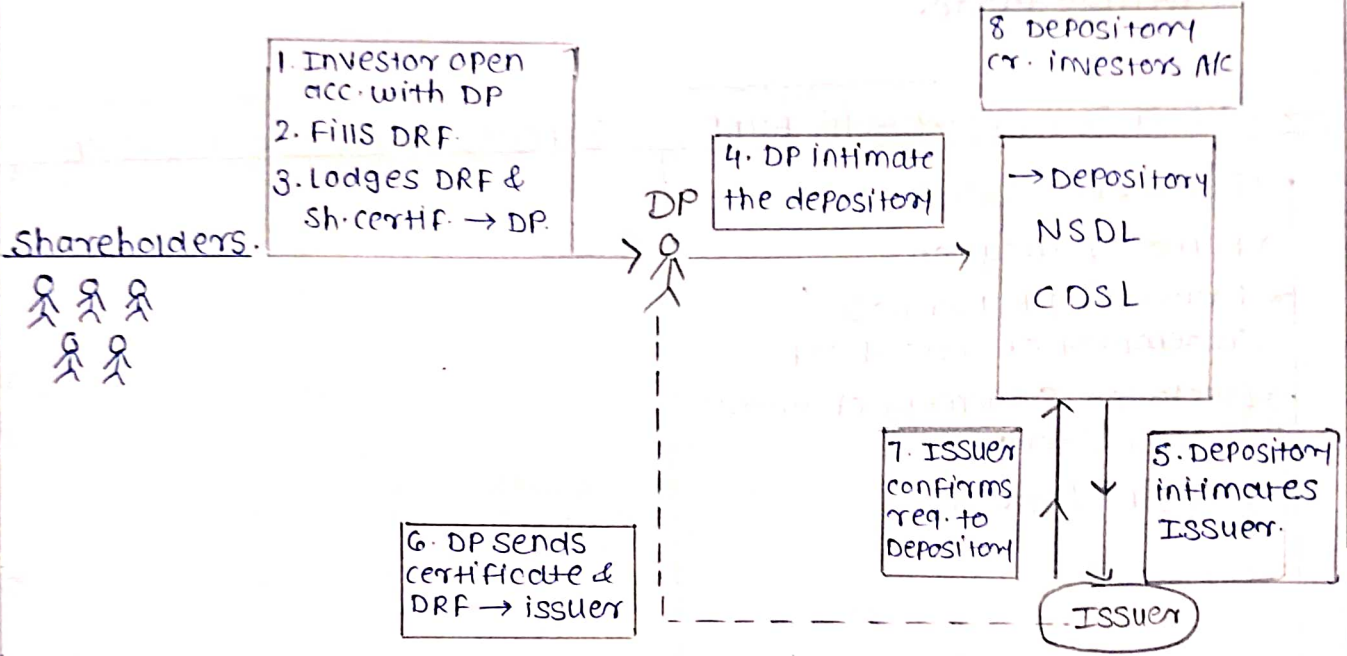 8 Depository
cr. investors A/C
1. Investor open
acc. with DP
2. Fills DRF.
3. Lodges DRF &
Sh. certif. → DP.
4. DP intimate
the depository
DP
→ Depository
NSDL
CDSL
Shareholders.
7. Issuer
confirms
req. to
Depository
5. Depository
intimates
Issuer.
6. DP sends
certificate &
DRF → issuer
Issuer